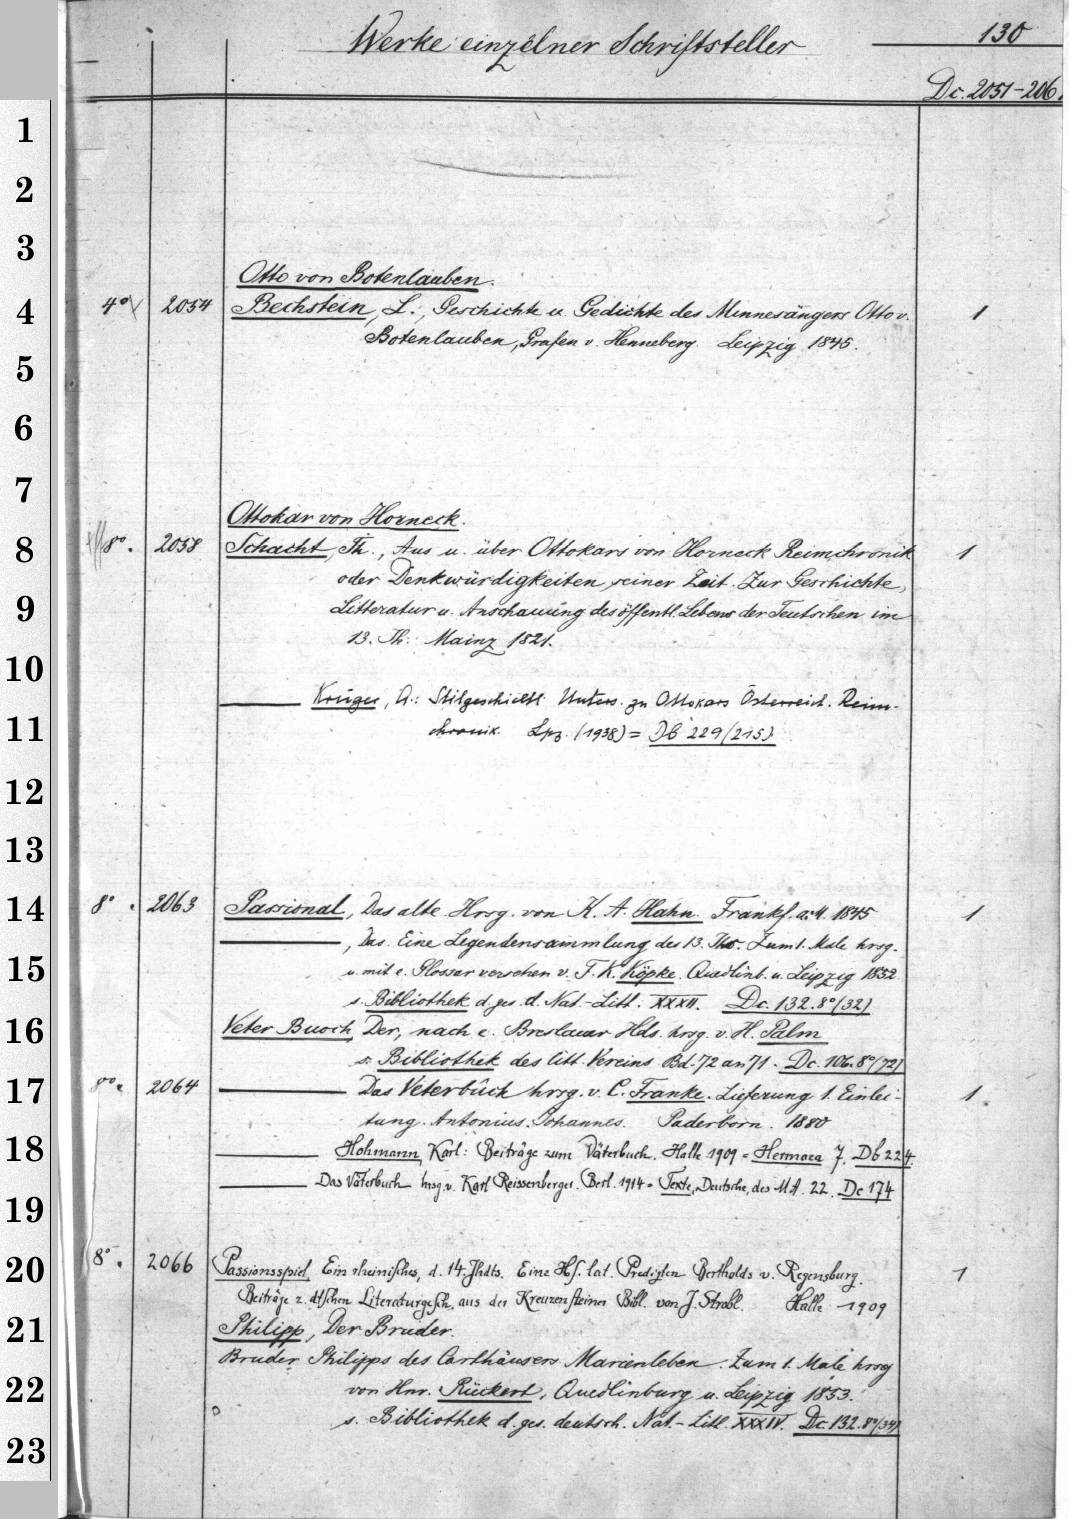 Werke einzelner Schriftsteller 130
Dc. 2051-206.
1
2
3
Otto von Botenlauben.
4 4° 2054 Bechstein, L., Geschichte u. Gedichte des Minnesängers Otto v. 1
Botenlauben, Grafen v. Henneberg. Leipzig 1845.
5
6
7
Ottokar von Horneck.
8 8°. 2058 Schacht, Th., Aus u. über Ottokars von Horneck Reimchronik 1
oder Denkwürdigkeiten seiner Zeit. Zur Geschichte,
9 Litteratur u. Anschauung des öffentl. Lebens der Teutschen im
13. Jh. Mainz 1821.
10
Krüger, A.: Stilgeschichtl. Unters. zu Ottokars Österreich. Reim-
11 chronik. Lpz. (1938) = Db 229/215)
12
13
14 8° . 2063 Passional, Das alte. Hrsg. von K. A. Hahn. Frankf. a. M. 1845 1
, Das. Eine Legendensammlung des 13. Jhd. Zum 1. Male hrsg.
15 u. mit e. Glossar versehen v. F. K. Köpke. Quedlinb. u. Leipzig 1852
s. Bibliothek d. ges. d. Nat.-Litt. XXXII. Dc. 132. 8°/32)
16 Veter Buoch, Der, nach e. Breslauer Hds. hrsg. v. H. Palm
s. Bibliothek des litt. Vereins Bd. 72 an 71. Dc. 106. 8°/72)
17 8°. 2064 Das Veterbûch hrsg. v. C. Franke. Lieferung 1. Einlei- 1.
tung. Antonius. Johannes. Paderborn. 1880
18 Hohmann, Karl: Beiträge zum Väterbuch. Halle 1909 = Hermaea 7. Db 224.
Das Väterbuch hrsg. v. Karl Reissenberger. Berl. 1914 = Texte, Deutsche, des M.A. 22. Dc 174
19
20 8°. 2066 Passionsspiel, Ein rheinisches, d. 14. Jhdts. Eine Hs. lat. Predigten Bertholds v. Regensburg. 1
Beiträge z. dtschen Literaturgesch. aus der Kreuzensteiner Bibl. von J. Strobl. Halle 1909
21 Philipp, Der Bruder.
Bruder Philipps des Carthäusers Marienleben. Zum 1. Male hrsg
22 von Hnr. Rückert, Quedlinburg u. Leipzig 1853.
s. Bibliothek d. ges. deutsch. Nat.-Litt. XXXIV. Dc. 132. 8°/34)
23